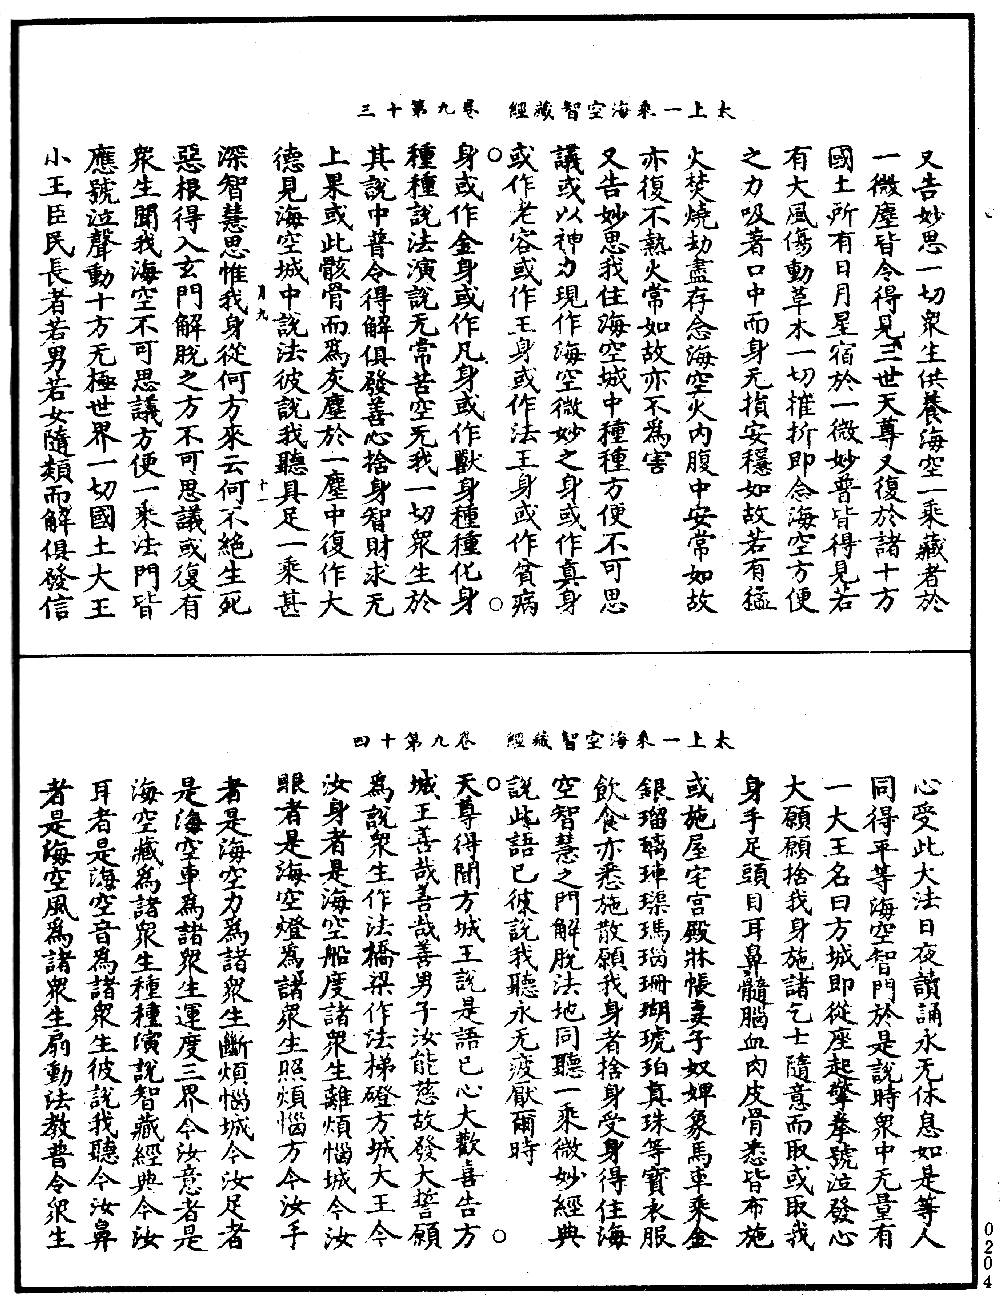 太上一乘海空智藏經　卷九第十三
又告妙思一切衆生供養海空一乘藏者於
一微塵皆令得見三世天尊又復於諸十方
國土所有日月星宿於一微妙普皆得見若
有大風傷動草木一切摧折即念海空方便
之力吸著口中而身无損安穩如故若有猛
火焚燒劫盡存念海空火內腹中安常如故
亦復不熱火常如故亦不為害
又告妙思我住海空城中種種方便不可思
議或以神力現作海空微妙之身或作真身
或作老容或作王身或作法王身或作貧病
身或作金身或作凡身或作獸身種種化身
種種說法演說无常苦空无我一切衆生於
其說中普令得解俱發善心捨身智財求无
上果或此骸骨而爲灰塵於一塵中復作大
德見海空城中說法彼說我聽具足一乘甚
月九
十一
深智慧思惟我身從何方來云何不絕生死
惡根得入玄門解脫之方不可思議或復有
衆生聞我海空不可思議方便一乘法門皆
應號泣聲動十方无極世界一切國土大王
小王臣民長者若男若女隨類而解俱發信
太上一乘海空智藏經　卷九第十四
心受此大法日夜讀誦永无休息如是等人
同得平等海空智門於是說時衆中无量有
一大王名曰方城即從座起擎拳號泣發心
大願願捨我身施諸乞士隨意而取或取我
身手足頭目耳鼻髓腦血肉皮骨悉皆布施
或施屋宅宮殿牀帳妻子奴婢象馬車乘金
銀瑠璃硨磲瑪瑙珊瑚琥珀真珠等寶衣服
飲食亦悉施散願我身者捨身受身得住海
空智慧之門解脫法地同聽一乘微妙經典
說此語已彼說我聽永无疲厭爾時
天尊得聞方城王說是語已心大歡喜告方
城王善哉善哉善男子汝能慈故發大誓願
爲說衆生作法橋梁作法梯磴方城大王今
汝身者是海空船度諸衆生離煩惱城今汝
眼者是海空燈爲諸衆生照煩惱方今汝手
者是海空力爲諸衆生斷煩惱城今汝足者
是海空車爲諸衆生運度三界今汝意者是
海空藏爲諸衆生種種演說智藏經典今汝
耳者是海空音爲諸衆生彼說我聽今汝鼻
者是海空風爲諸衆生扇動法教普令衆生
0204